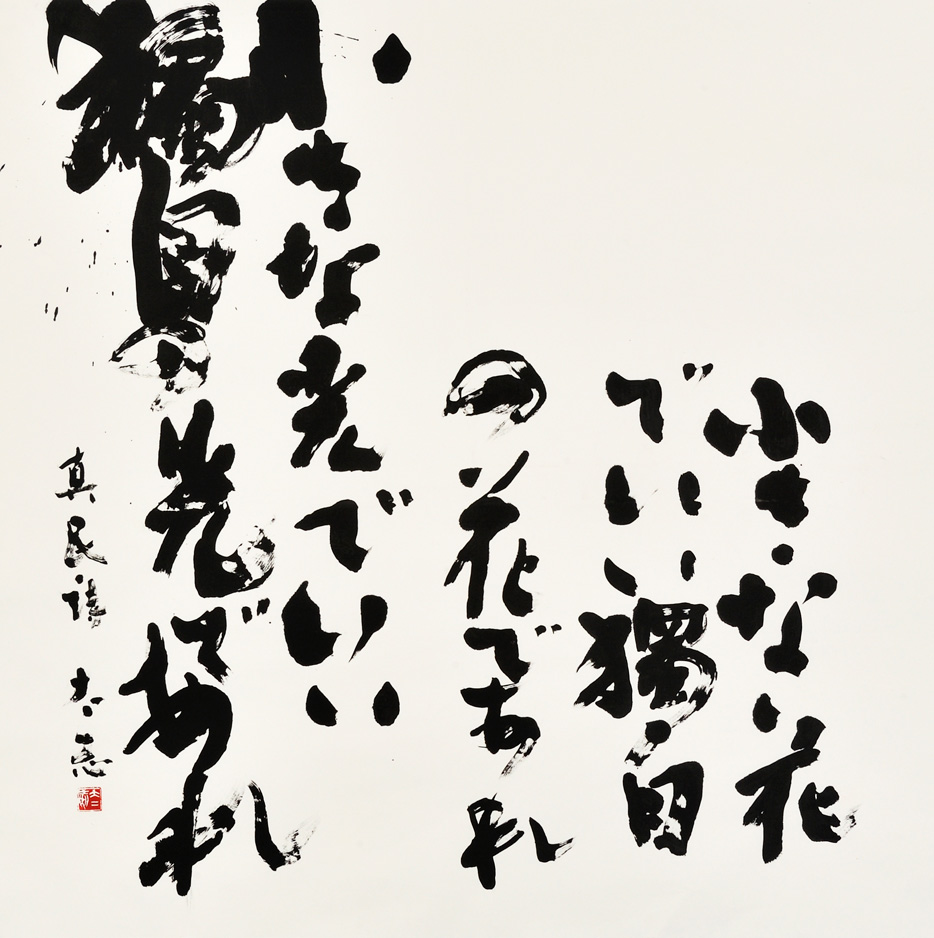 小さな花
でいい獨自
の花であれ
小さな光でいい
獨自の光であれ
真民詩